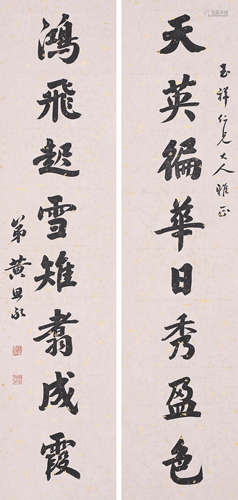 天英徧華日秀盈色
玉祥仁兄大人雅正
鴻飛起雪雉翥成霞
弟黃自元